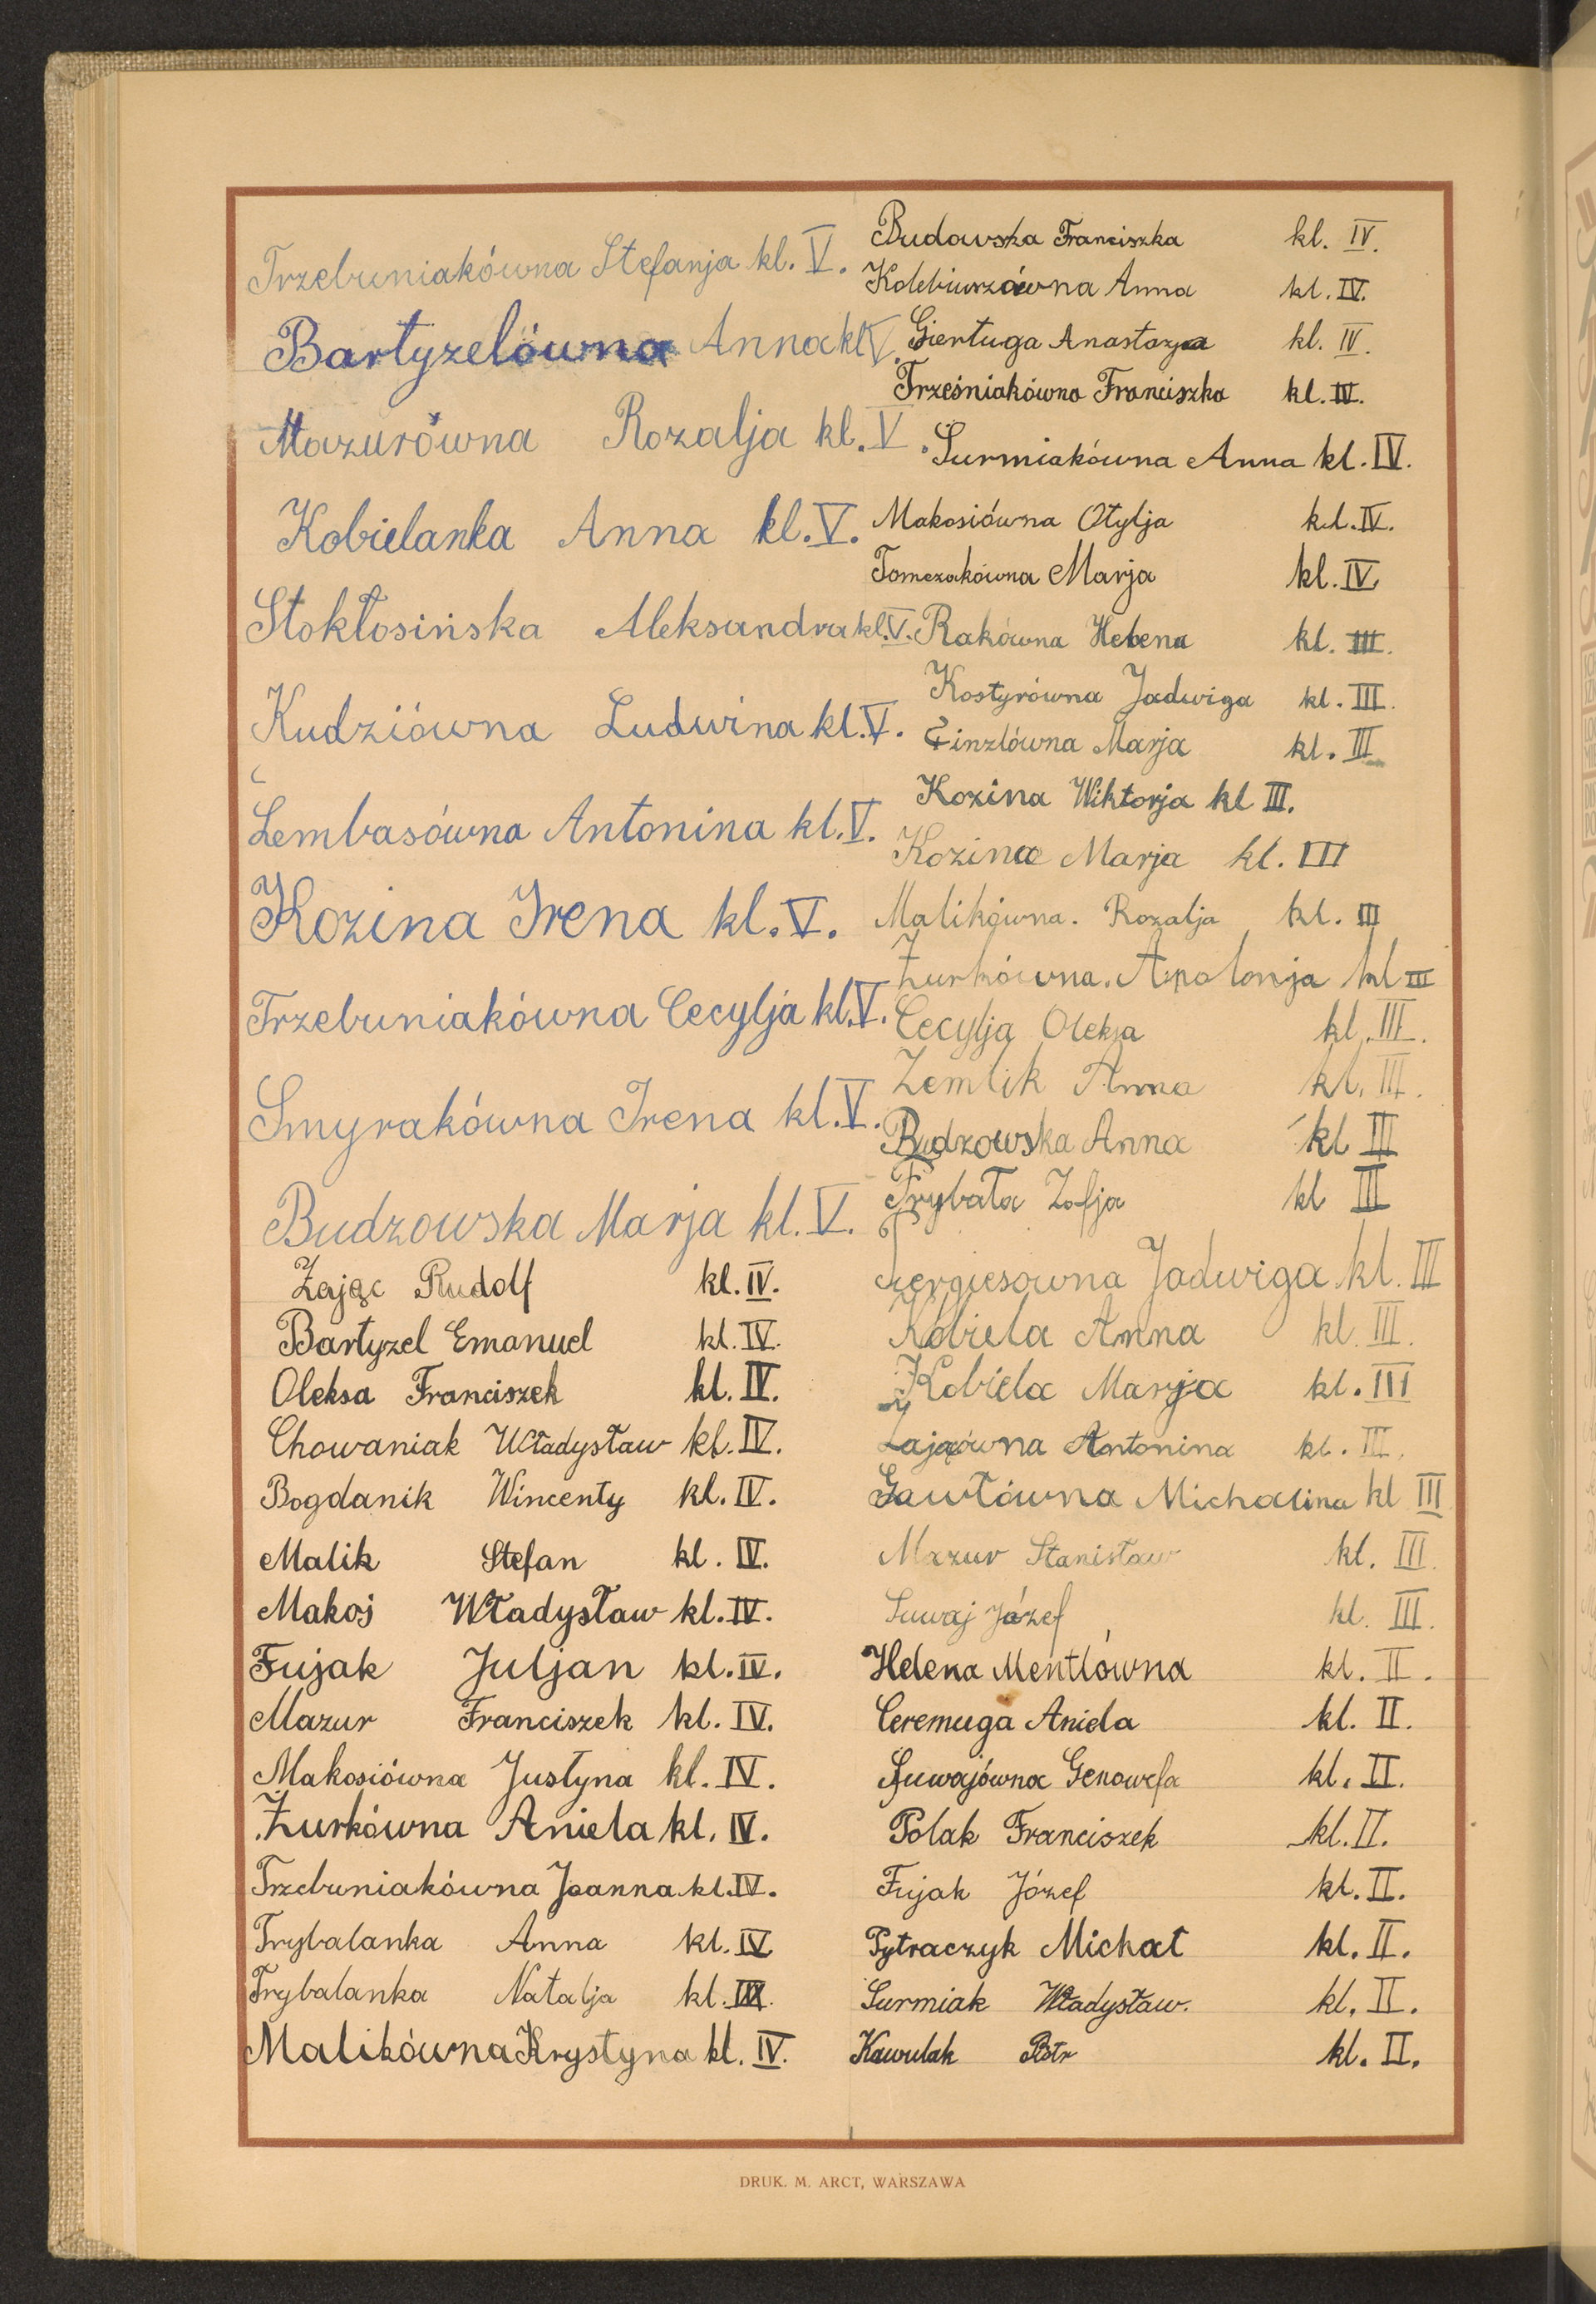 Trzebuniakówna Stefanja kl. V.
Bartyzelówna Anna kl V.
Mazurówna Rozalja kl. V.
Kobielanka Anna kl. V.
Stokłosińska Aleksandra kl. V.
Kudziówna Ludwina kl. V.
Lembasówna Antonina kl. V.
Kozina Irena kl. V.
Trzebuniakówna Cecylja kl. V.
Smyrakówna Irena kl. V.
Budzowska Marja kl. V.
Zając Rudolf kl. IV.
Bartyzel Emanuel kl. IV.
Oleksa Franciszek kl. IV.
Chowaniak Władysław kl. IV.
Bogdanik Wincenty kl. IV.
Malik Stefan kl. IV.
Makoś Władysław kl. IV.
Fujak Juljan kl. IV.
Mazur Franciszek kl. IV.
Makosiówna Justyna kl. IV.
Żurkówna Aniela kl. IV.
Trzebuniakówna Joanna kl. IV.
Trybalanka Anna kl. IV
Trybalanka Natalja kl.
Malikówna Krystyna kl. IV.
Budowska Franciszka kl. IV.
Anna kl. IV.
Gieruga Anastazja kl. IV.
Trześniakówna Franciszka kl. IV.
Surmiakówna Anna kl. IV.
Makosiówna Otylja kl. IV.
Tomczakówna Marja kl. IV
Rakówna Helena kl. III.
Kostyrówna Jadwiga kl. III.
Marja kl. III
Kozina Wiktorja kl III.
Kozina Marja kl. III
Malikówna. Rozalja kl. III
Żurkówna. Apolonja kl III
Cecylja Oleksa kl. III.
Zemlik Anna kl. III.
Budzowska Anna kl III
Trybała Zofja kl III
Jadwiga kl. III
Kobiela Anna kl. III.
Kobiela Marja kl. III
Antonina kl. III.
Gawłówna Michalina kl III
Mazur Stanisław kl. III.
Suwaj Józef kl. III.
Helena Mentlówna kl. II.
Ceremuga Aniela kl. II.
Suwajówna Genowefa kl. II.
Polak Franciszek kl. II.
Fujak Józef kl. II.
Pytraczyk Michał kl. II.
Surmiak Władysław. kl. II.
Kawulak Piotr kl. II.
DRUK. M. ARCT, WARSZAWA